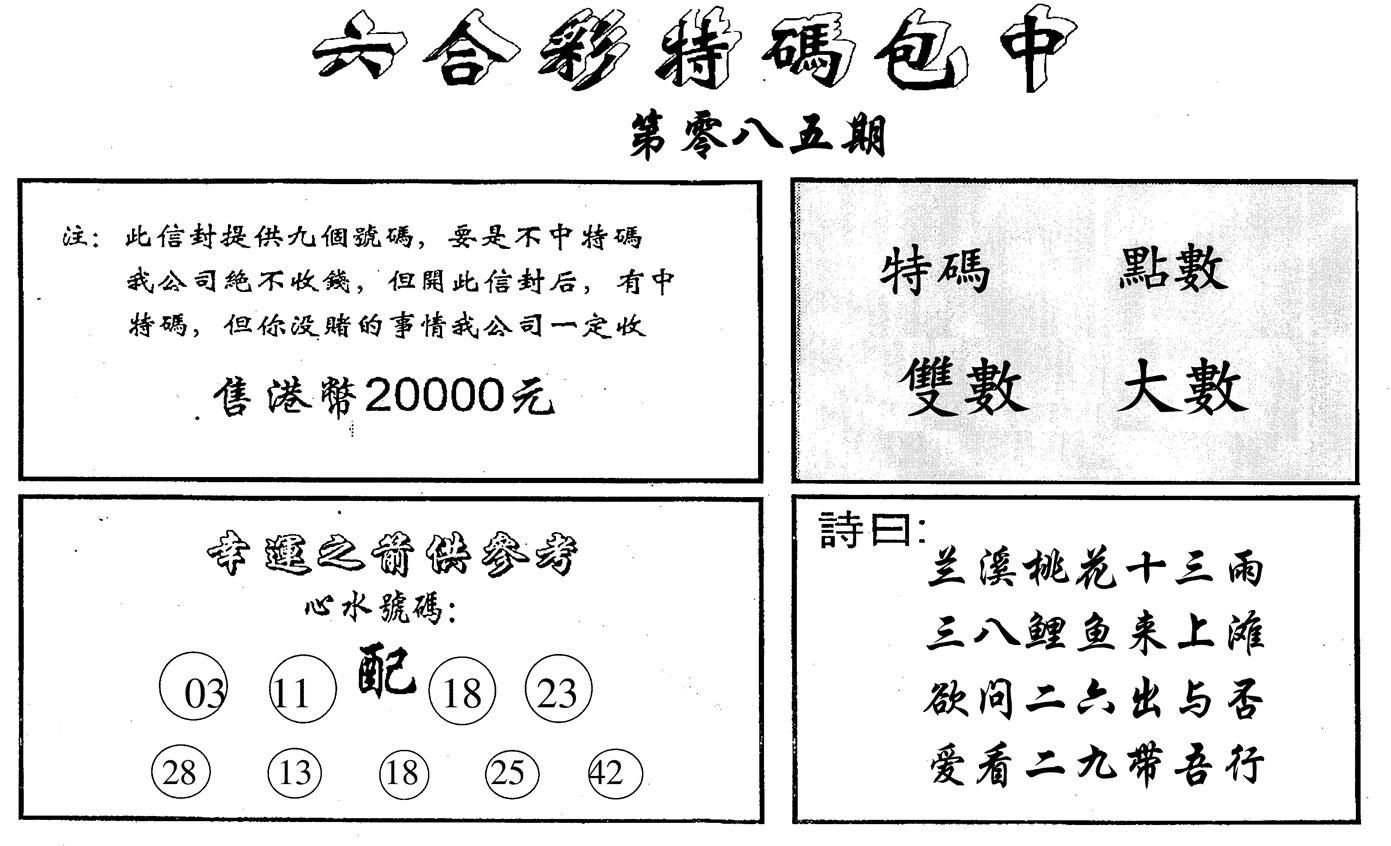 六合彩特碼包中
第零八五期
注：此信封提供九個號碼，要是不中特碼
我公司絕不收錢，但開此信封后，有中
特碼，但你没賭的事情我公司一定收
售港幣20000元
特碼 點數
雙數 大數
幸運之箭供參考
心水號碼：
03 11 配 18 23
28 13 18 25 42
詩曰：
兰溪桃花十三雨
三八鲤鱼来上滩
欲问二六出与否
爱看二九帶吾行